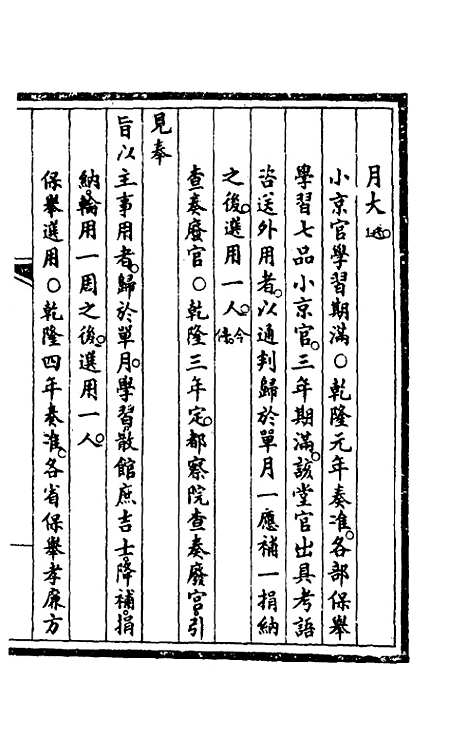 月大
小京官學習期滿○乾隆元年奏准。各部保舉
學習七品小京官。三年期滿。該堂官出具考語
咨送外用者。以通判歸於單月一應補一捐納
之後。選用一人。今停。
查奏廢官○乾隆三年定。都察院查奏廢官。引
見奉
旨以主事用者。歸於單月。學習散館庶吉士。降補。捐
納。輪用一周之後。選用一人。
保舉選用○乾隆四年奏准。各省保舉孝廉方